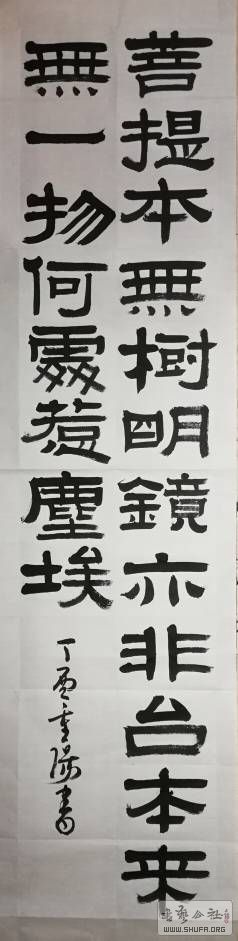 菩提本無樹明鏡亦非台本来
無一物何處惹塵埃
丁酉重陽書
书艺公社
WWW.SHUFA.ORG